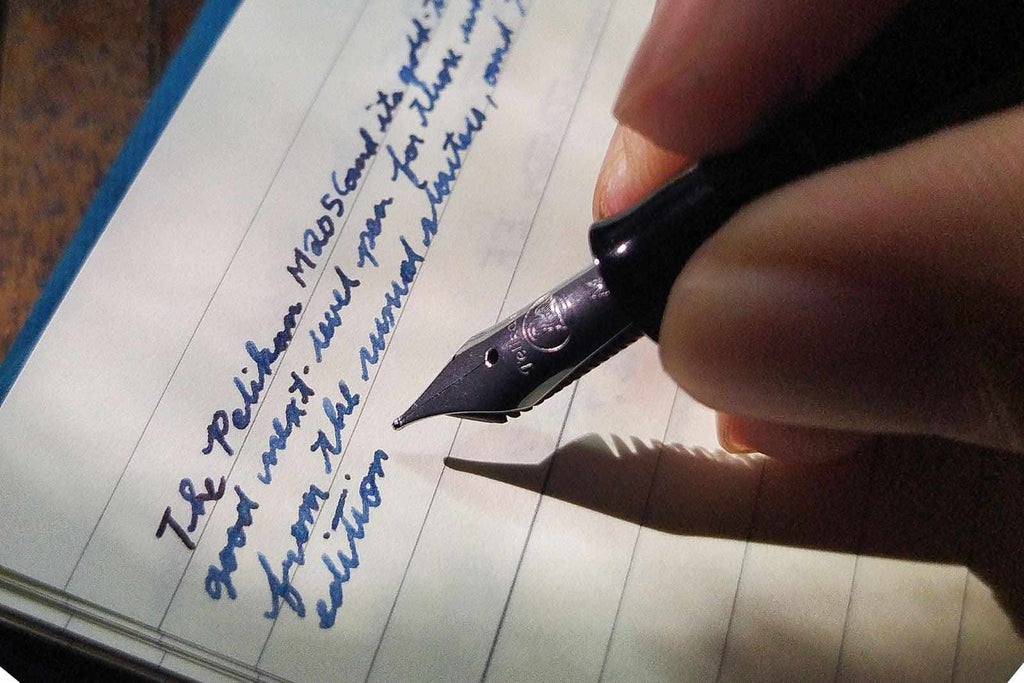 The Pelikan M205 (and its gold-
good next-level pen for those
from the usual starters, and
edition
Pelikan